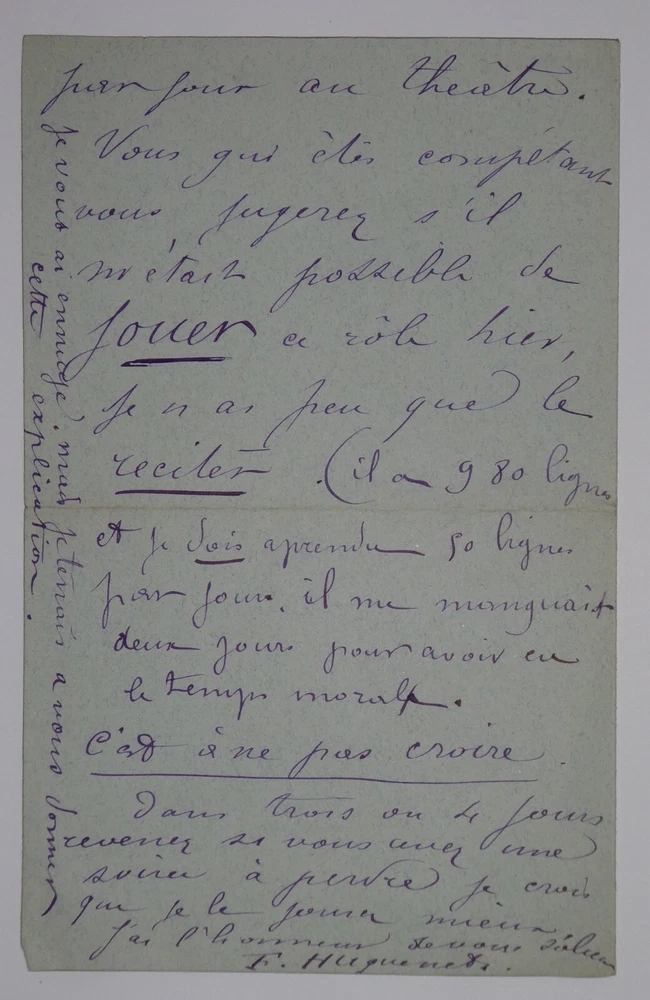 par jour au théâtre.
Vous qui êtes compétant
vous jugerez s'il
m'était possible de
jouer ce rôle hier,
je n'ai peu que le
reciter. (il a 980 lignes
et je dois aprendre 50 lignes
par jour. il me manquait
deux jours pour avoir eu
le temps moral.
C'est à ne pas croire.
Dans trois ou 4 jours
revenez si vous avez une
soirée à perdre je crois
que je le jouerai mieux
j'ai l'honneur de vous saluer
F. Huguenet.
je vous ai ennuyé, mais je tenais a vous donner
cette explication.